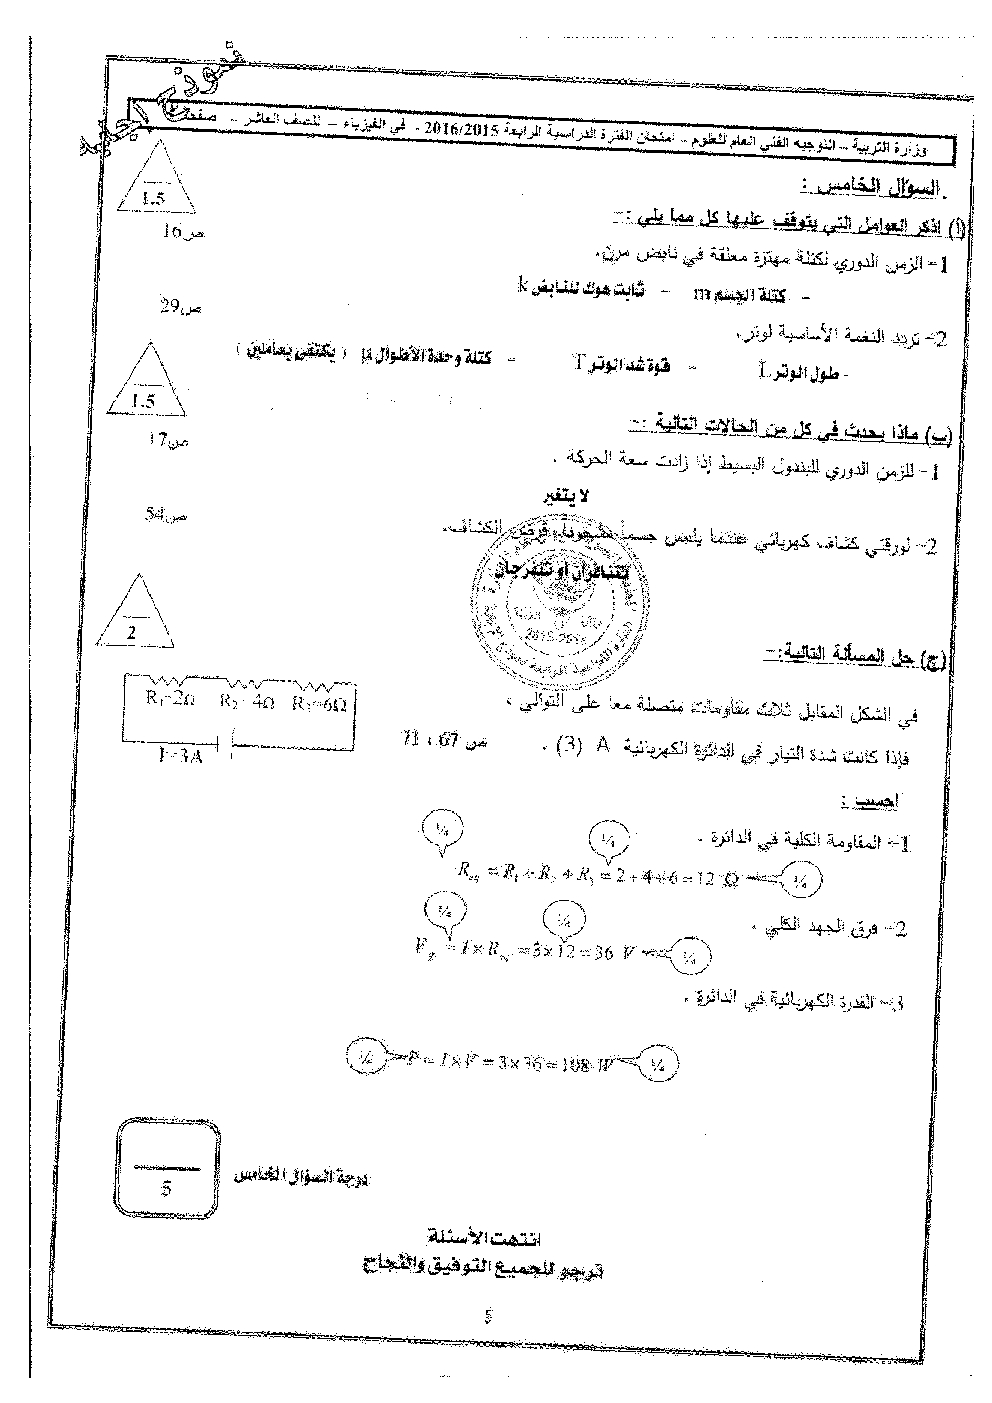 نموذج
وزارة التربية – التوجيه الفني العام للعلوم – امتحان الفترة الدراسية الرابعة 2016/2015 – في الفيزياء – للصف العاشر – صفحة
السؤال الخامس :
1.5
(أ) اذكر العوامل التي يتوقف عليها كل مما يلي :-
ص16
1- الزمن الدوري لكتلة مهتزة معلقة في نابض مرن.
- كتلة الجسم m - ثابت هوك للنابض k
ص29
2- تردد النغمة الأساسية لوتر.
- طول الوتر L - قوة شد الوتر T - كتلة وحدة الأطوال µ ( يكتفى بعاملين )
1.5
(ب) ماذا يحدث في كل من الحالات التالية :-
ص17
1- للزمن الدوري للبندول البسيط إذا زادت سعة الحركة .
لا يتغير
ص54
2- لورقتي كشاف كهربائي عندما يلمس جسماً مشحوناً قرص الكشاف.
تتنافران أو تنفرجان
2015-2016
2
(ج) حل المسألة التالية:-
R1=2Ω R2=4Ω R3=6Ω
I=3A
في الشكل المقابل ثلاث مقاومات متصلة معا على التوالي ،
فإذا كانت شدة التيار في الدائرة الكهربائية A (3) . ص 67 ، 71
احسب :
1- المقاومة الكلية في الدائرة .
¼ ¼
Req = R1 + R2 + R3 = 2 + 4 + 6 = 12 Ω ¼
2- فرق الجهد الكلي .
¼ ¼
= I × Req = 3 × 12 = 36 V ¼
3- القدرة الكهربائية في الدائرة .
P = I × V = 3 × 36 = 108 W ¼
5
درجة السؤال الخامس
انتهت الأسئلة
نرجو للجميع التوفيق والنجاح
5